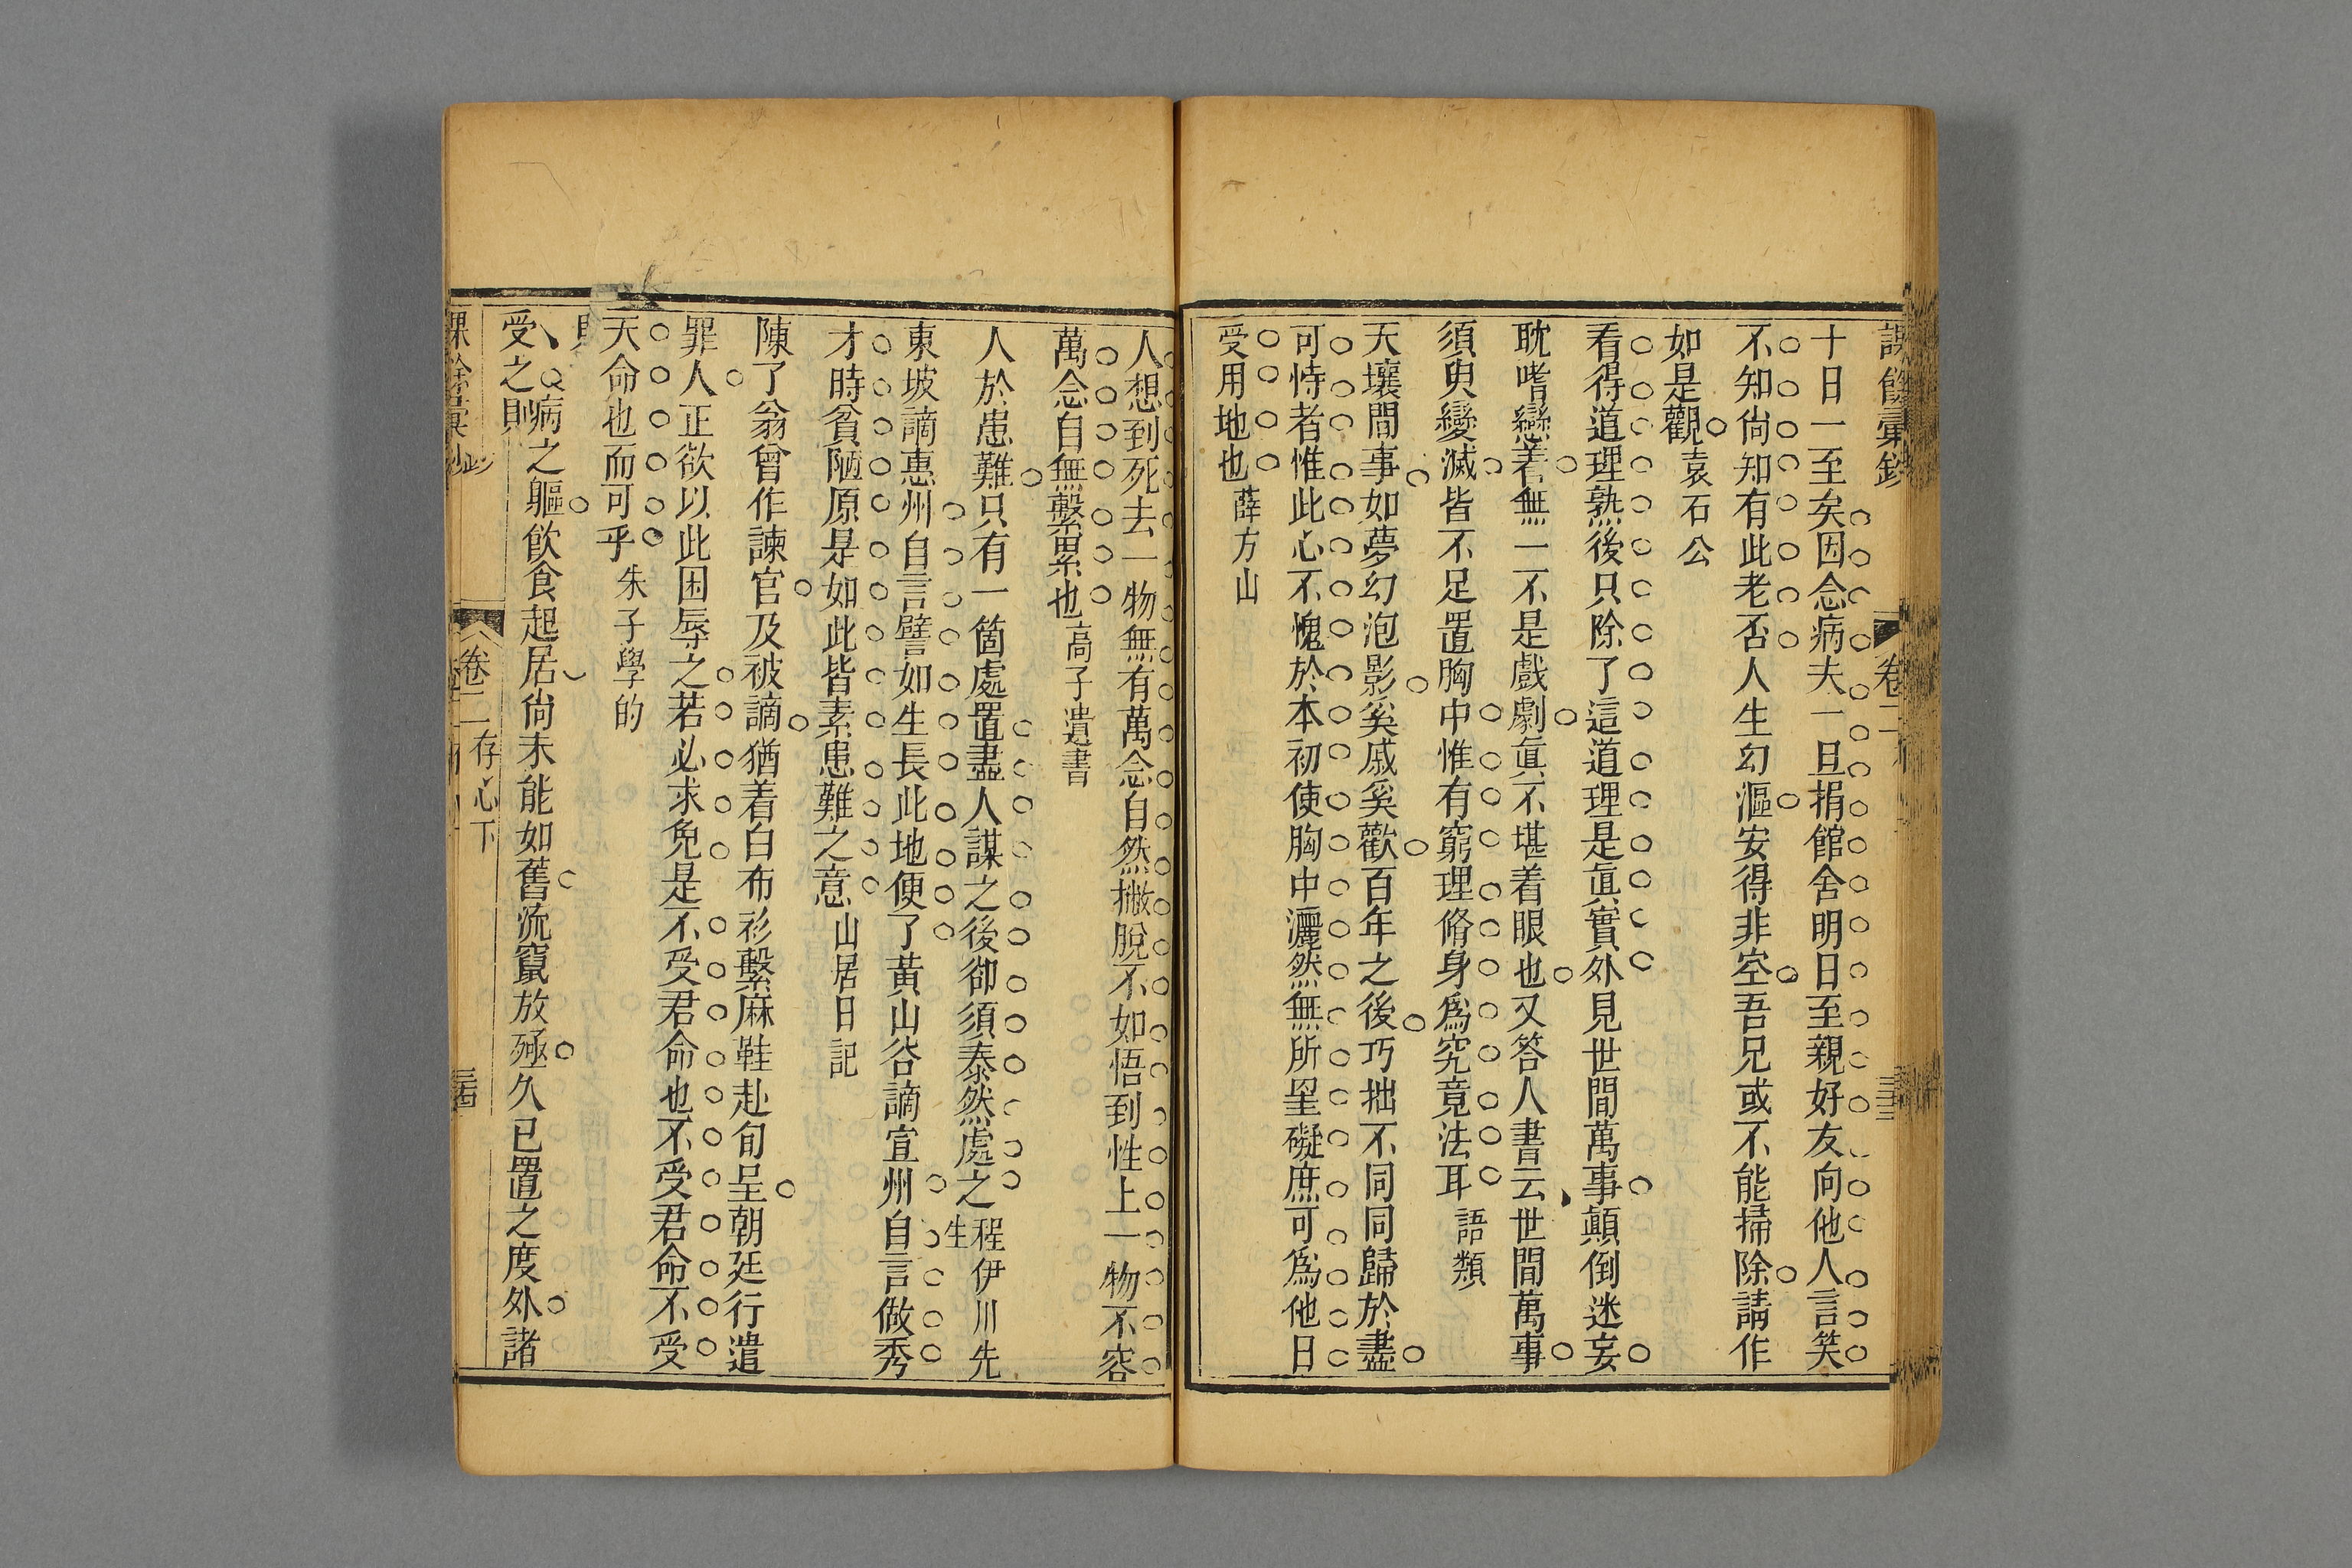 課餘彙鈔
卷二
三三
十日一至矣因念病夫一旦捐館舍明日至親好友向他人言笑
不知尙知有此老否人生幻漚安得非空吾兄或不能掃除請作
如是觀袁石公
看得道理熟後只除了這道理是眞實外見世間萬事顚倒迷妄
耽嗜戀着無一不是戲劇眞不堪着眼也又答人書云世間萬事
須臾變滅皆不足置胸中惟有窮理脩身爲究竟法耳語類
天壤間事如夢幻泡影奚戚奚歡百年之後巧拙不同同歸於盡
可恃者惟此心不愧於本初使胸中灑然無所罣礙庶可爲他日
受用地也薛方山
人想到死去一物無有萬念自然撇脫不如悟到性上一物不容
萬念自無繫累也高子遺書
人於患難只有一箇處置盡人謀之後卻須泰然處之程伊川先生
東坡謫惠州自言譬如生長此地便了黃山谷謫宜州自言做秀
才時貧陋原是如此皆素患難之意山居日記
陳了翁曾作諫官及被謫猶着白布衫繫麻鞋赴旬呈朝廷行遣
罪人正欲以此困辱之若必求免是不受君命也不受君命不受
天命也而可乎朱子學的
病之軀飮食起居尙未能如舊流竄放殛久已置之度外諸
受之則
課餘彙鈔
卷二
存心下
三四